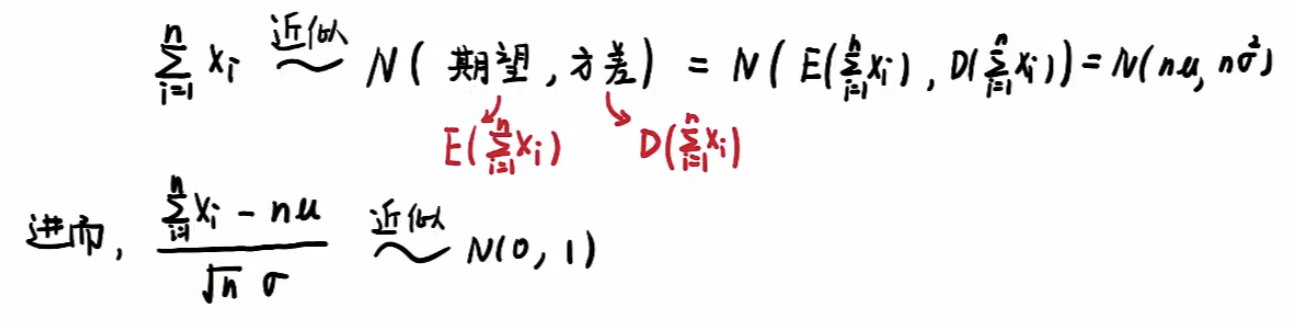 ∑_{i=1}^{n} x_i 近似 ~ N( 期望 , 方差 ) = N( E(∑_{i=1}^{n} x_i) , D(∑_{i=1}^{n} x_i) ) = N(nμ, nσ²)
E(∑_{i=1}^{n} x_i) D(∑_{i=1}^{n} x_i)
进而, (∑_{i=1}^{n} x_i - nμ) / (√n σ) 近似 ~ N(0, 1)